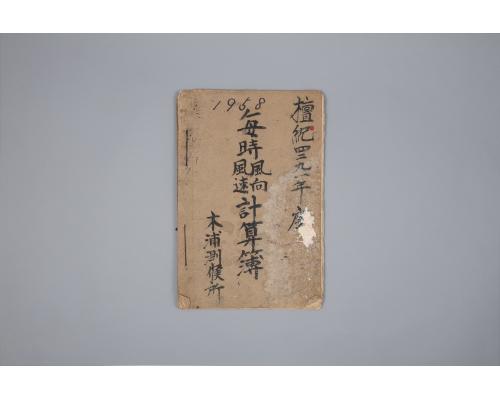 檀紀四二九一年度
1958
每時風向風速計算簿
木浦測候所